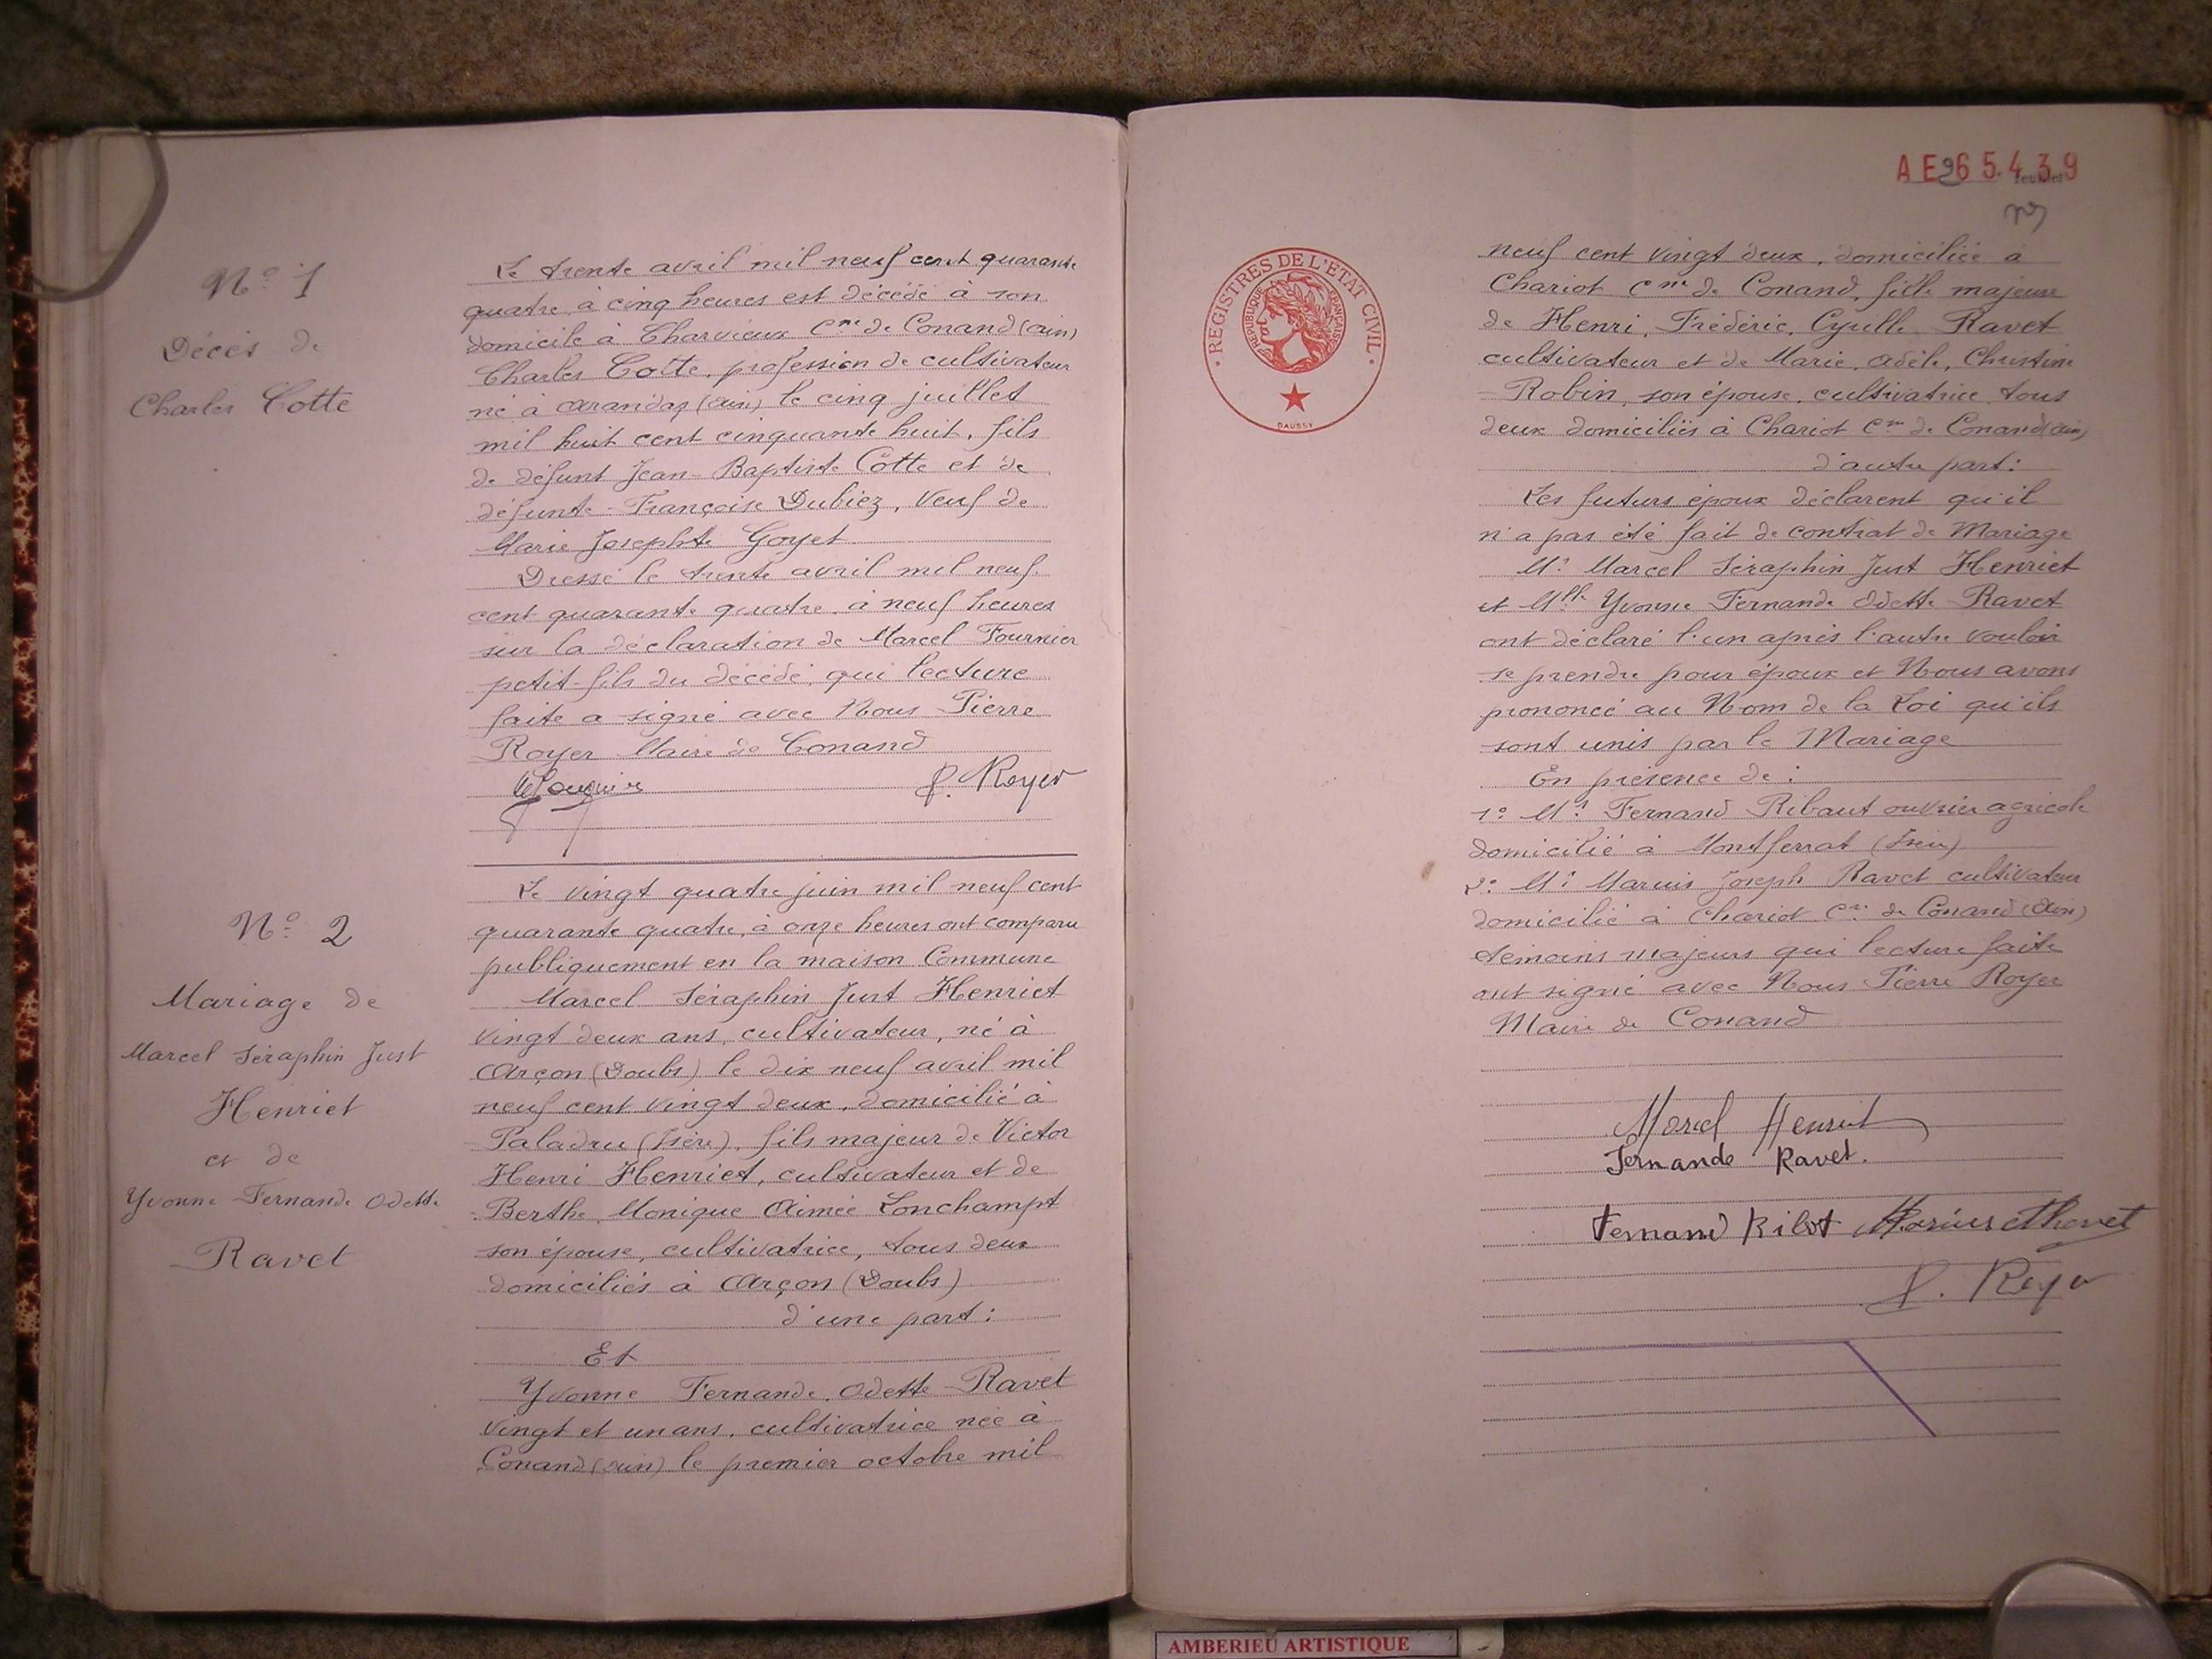 N° 1
Décès de
Charles Cotte
Le trente avril mil neuf cent quarante
quatre, à cinq heures est décédé à son
domicile à Charvieux Cne de Conand (Ain)
Charles Cotte, profession de cultivateur
né à Arandas (Ain) le cinq juillet
mil huit cent cinquante huit, fils
de défunt Jean-Baptiste Cotte et de
défunte Françoise Dubiez, veuf de
Marie Josephte Goyet
Dressé le trente avril mil neuf
cent quarante quatre, à neuf heures
sur la déclaration de Marcel Fournier
petit-fils du décédé, qui lecture
faite a signé avec Nous Pierre
Royer Maire de Conand
P. Royer
N° 2
Mariage de
Marcel Séraphin Just
Henriet
et de
Yvonne Fernande Odette
Ravet
Le vingt quatre juin mil neuf cent
quarante quatre, à onze heures ont comparu
publiquement en la maison Commune
Marcel Séraphin Just Henriet
vingt deux ans, cultivateur, né à
Arçon (Doubs) le dix neuf avril mil
neuf cent vingt deux, domicilié à
Paladru (Isère), fils majeur de Victor
Henri Henriet, cultivateur et de
Berthe, Monique Aimée Lonchampt
son épouse, cultivatrice, tous deux
domiciliés à Arçon (Doubs)
d'une part :
Et
Yvonne Fernande, Odette Ravet
vingt et un ans, cultivatrice née à
Conand (Ain) le premier octobre mil
AE965439
REGISTRES DE L'ETAT CIVIL
REPUBLIQUE FRANÇAISE
DAUSSY
neuf cent vingt deux, domiciliée à
Chariot Cne de Conand, fille majeure
de Henri, Frédéric, Cyrille Ravet
cultivateur et de Marie, Adèle, Christine
Robin, son épouse, cultivatrice tous
deux domiciliés à Chariot Cne de Conand (Ain)
d'autre part :
Les futurs époux déclarent qu'il
n'a pas été fait de contrat de Mariage
Mr Marcel Séraphin Just Henriet
et Mlle Yvonne Fernande Odette Ravet
ont déclaré l'un après l'autre vouloir
se prendre pour époux et Nous avons
prononcé au Nom de la Loi qu'ils
sont unis par le Mariage
En présence de :
1° Mr Fernand Ribaut ouvrier agricole
domicilié à Montferrat (Isère)
2° Mr Marius Joseph Ravet cultivateur
domicilié à Chariot Cne de Conand (Ain)
témoins majeurs qui lecture faite
ont signé avec Nous Pierre Royer
Maire de Conand
Marcel Henriet
Fernande Ravet.
Fernand Marius
P. Royer
AMBERIEU ARTISTIQUE